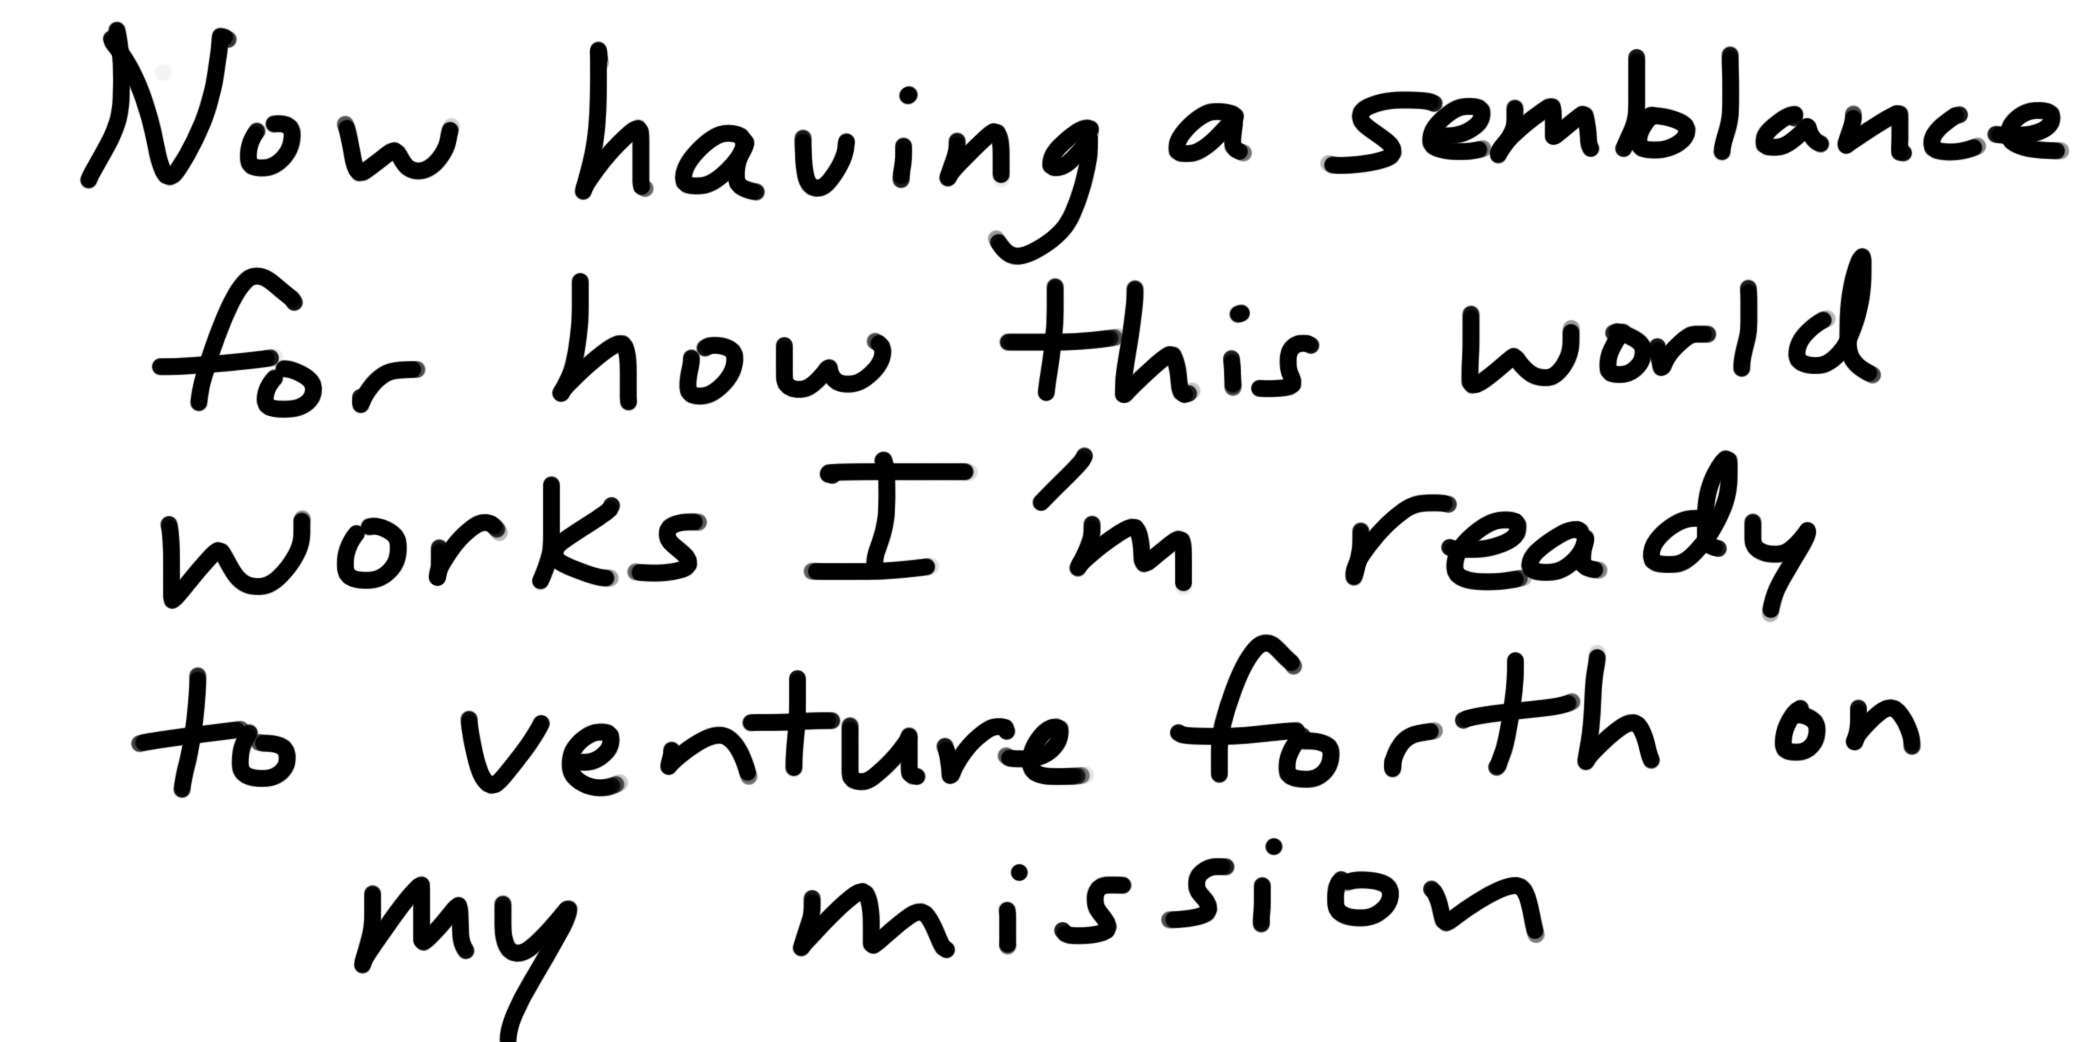 Now having a semblance
for how this world
works I'm ready
to venture forth on
my mission